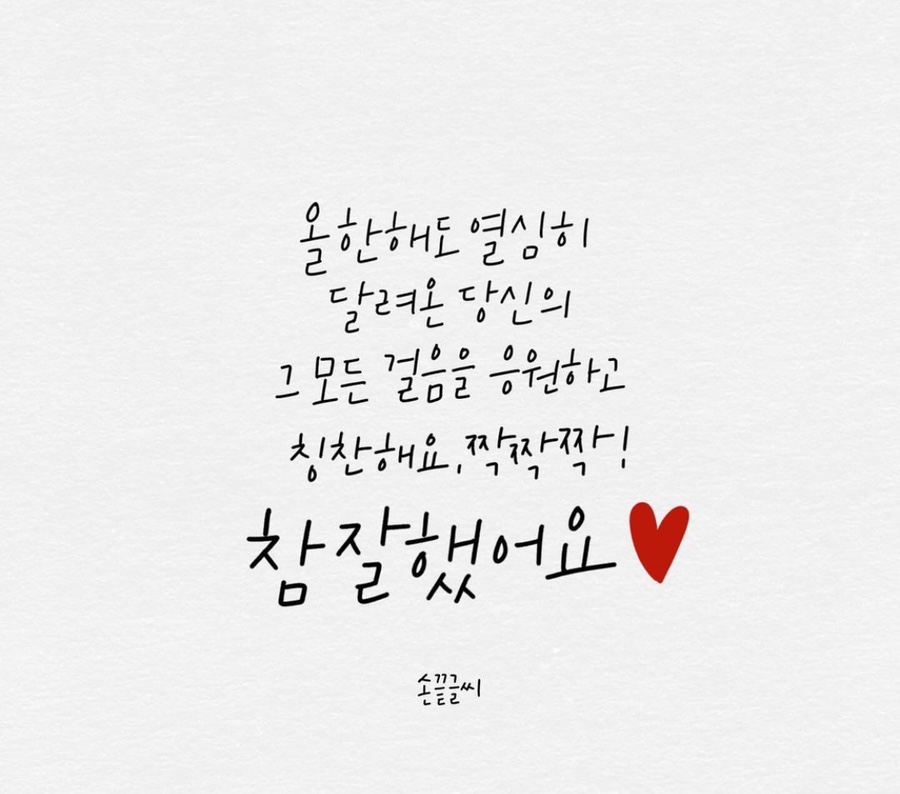 올 한해도 열심히
달려온 당신의
그 모든 걸음을 응원하고
칭찬해요, 짝짝짝!
참 잘했어요
손끝글씨